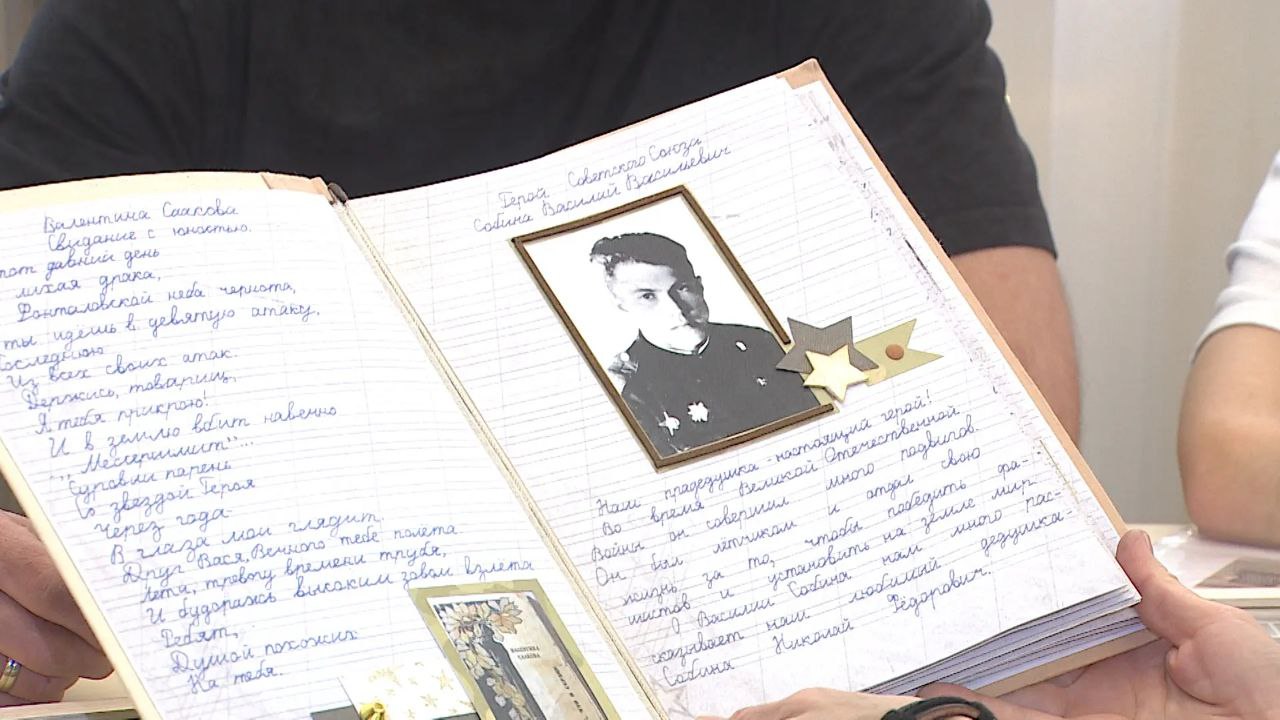 Валентина Саакова
Свидание с юностью.
тот давний день
лихая драка,
Фонталовской неба чернота,
ты идешь в девятую атаку,
Последнюю
Из всех своих атак.
Держись, товарищ,
Я тебя прикрою!
И в землю вбит навечно
"Мессершмитт"...
Суровый парень
Со звездой Героя
Через года
В глаза мои глядит.
Друг Вася, Вечного тебе полёта
Лета, тревогу времени трубя,
И будоражь высоким зовом взлёта
Ребят,
Душой похожих
На тебя.
Герой Советского Союза
Собина Василий Васильевич
Наш прадедушка - настоящий герой!
Во время Великой Отечественной
Войны он совершил много подвигов.
Он был лётчиком и отдал свою
жизнь за то, чтобы победить фа-
шистов и установить на земле мир.
О Василии Собина нам много рас-
сказывает наш любимый дедушка-
Собина Николай Фёдорович.
СААКОВА